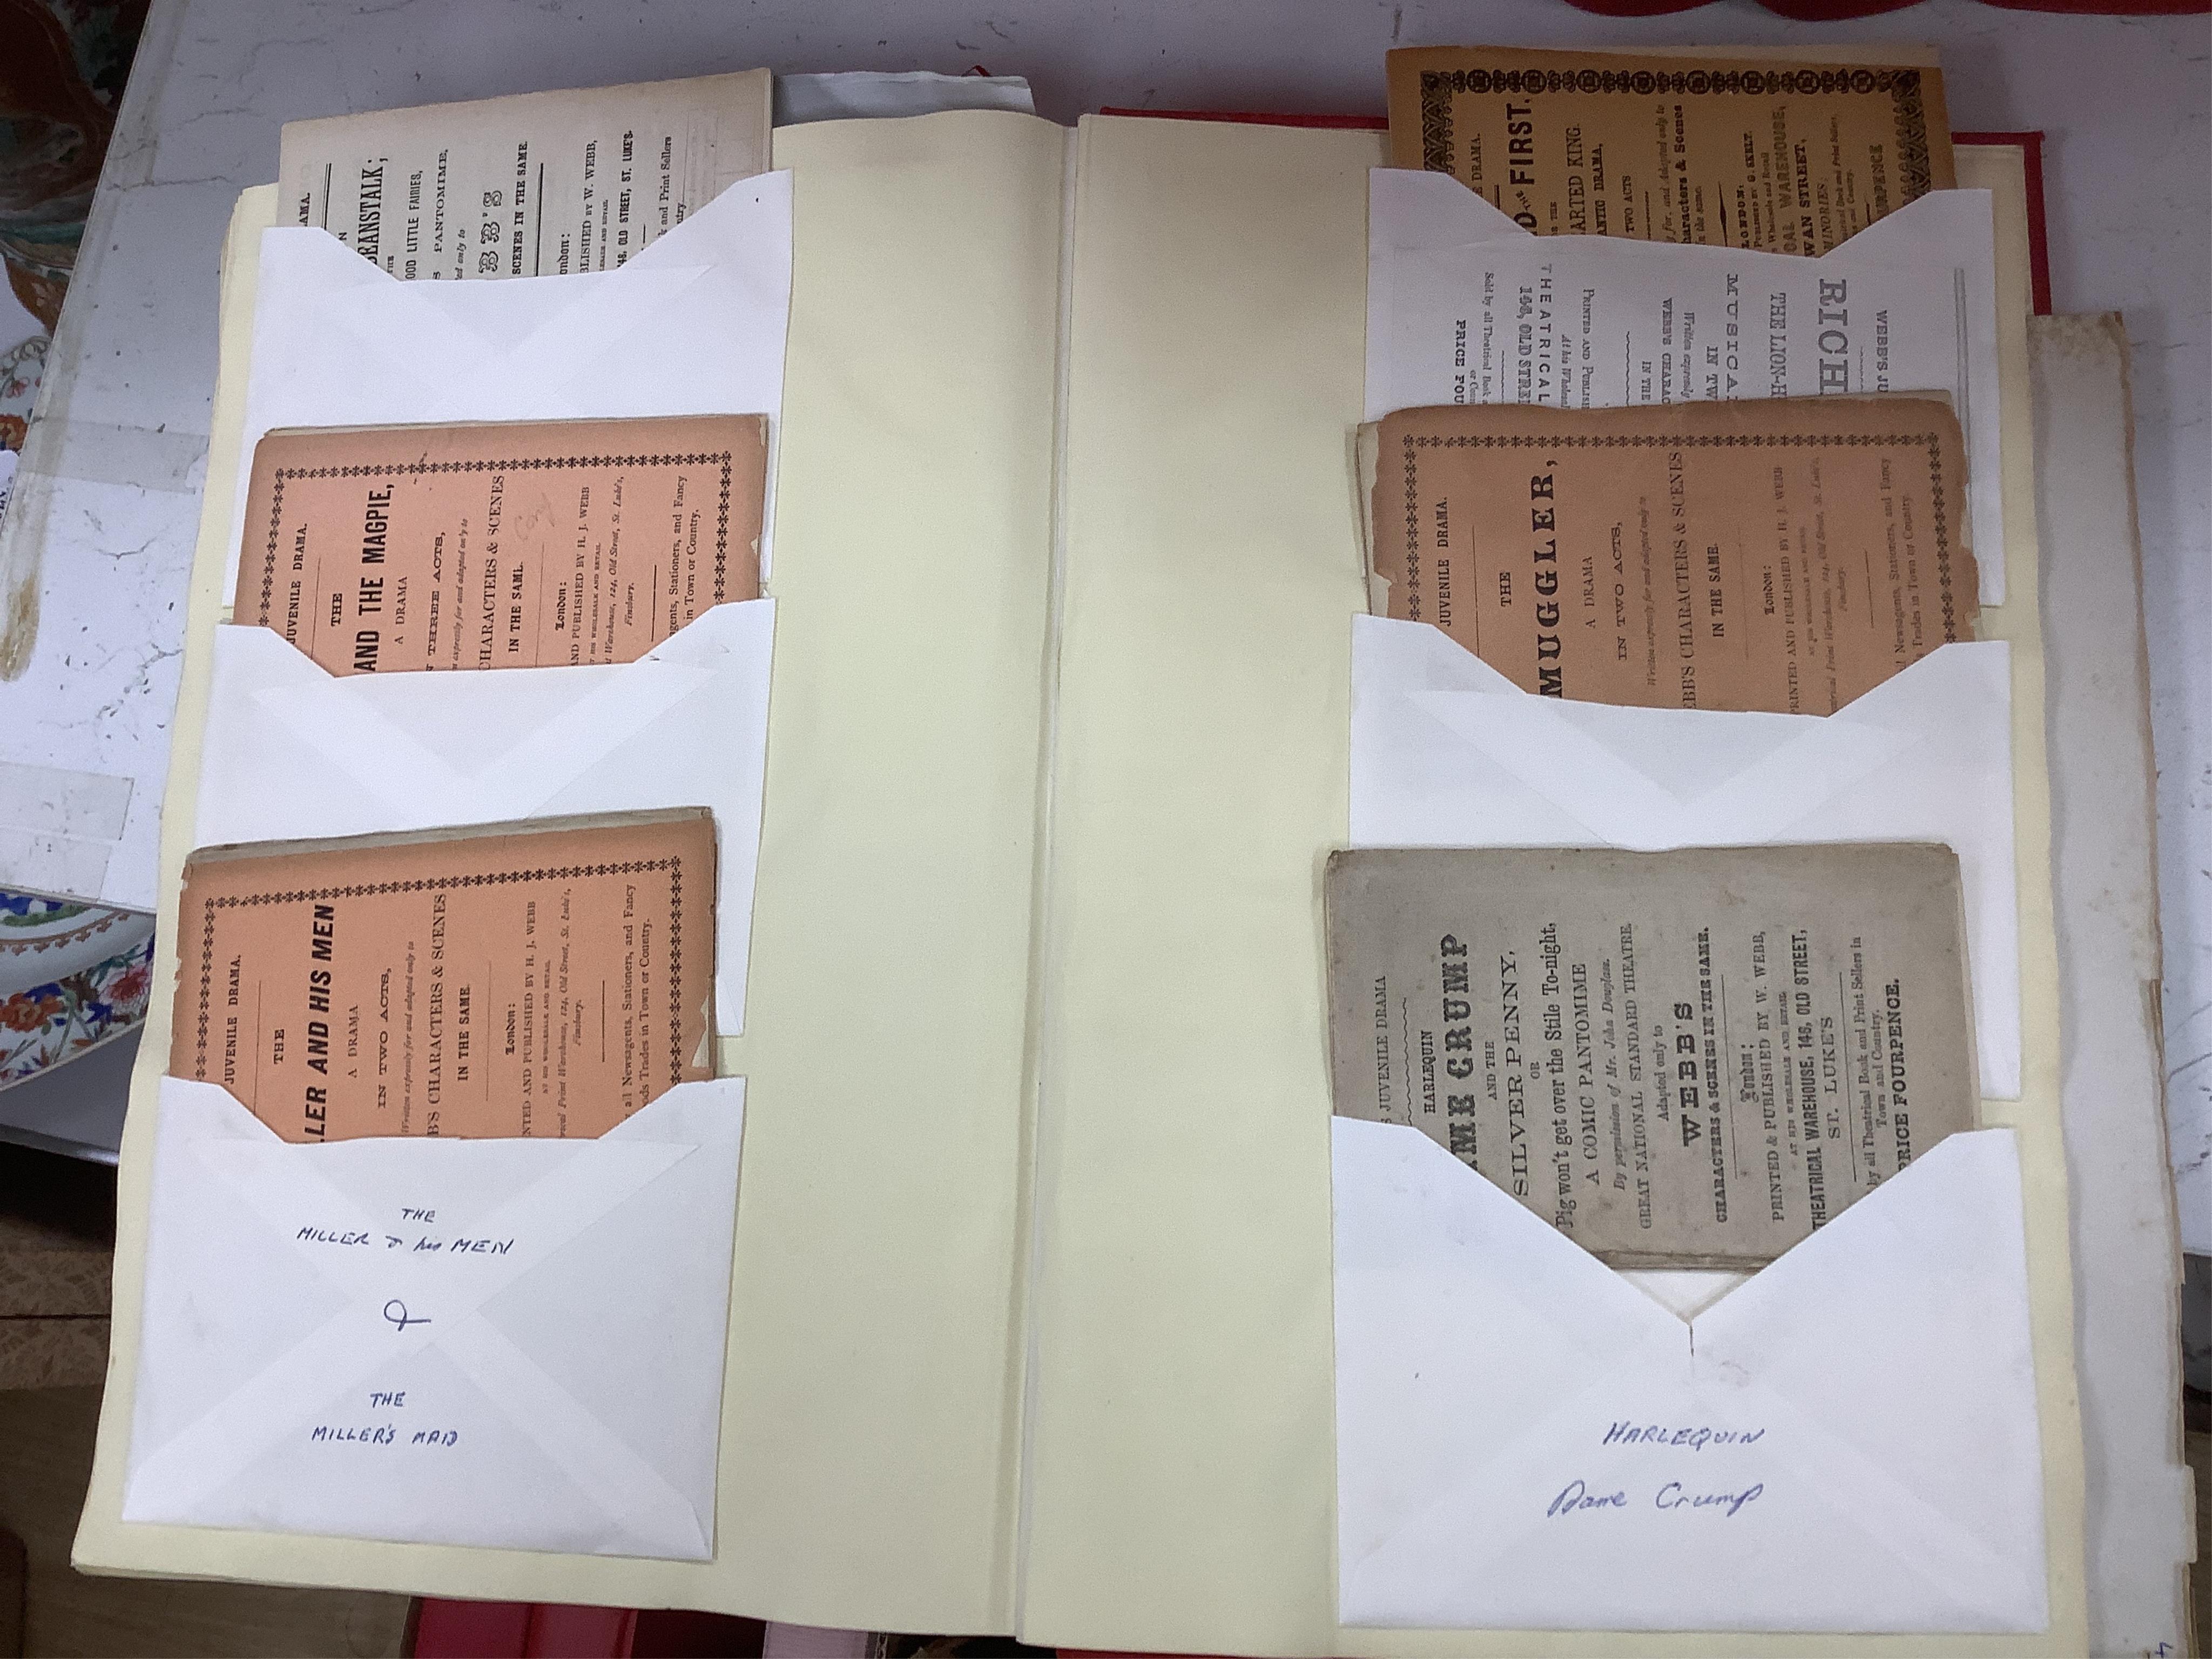 AMA.
EANSTALK;
OOD LITTLE FAIRIES,
PANTOMIME,
only to
SCENES IN THE SAME.
ondon:
BLISHED BY W. WEBB,
148, OLD STREET, ST. LUKE'S.
and Print Sellers
ntry
JUVENILE DRAMA.
THE
AND THE MAGPIE,
A DRAMA
THREE ACTS,
n expressly for and adapted only to
CHARACTERS & SCENES
IN THE SAME.
London:
AND PUBLISHED BY H. J. WEBB
AT HIS WHOLESALE AND RETAIL
l Warehouse, 124, Old Street, St. Luke's,
Finsbury.
gents, Stationers, and Fancy
in Town or Country.
JUVENILE DRAMA.
THE
LLER AND HIS MEN
A DRAMA
IN TWO ACTS,
Written expressly for and adapted only to
B'S CHARACTERS & SCENES
IN THE SAME.
London:
NTED AND PUBLISHED BY H. J. WEBB
AT HIS WHOLESALE AND RETAIL
rical Print Warehouse, 124, Old Street, St. Luke's,
Finsbury.
all Newsagents, Stationers, and Fancy
ods Trades in Town or Country.
THE
MILLER & his MEN
&
THE
MILLER'S MAID
E DRAMA.
D THE FIRST.
OR THE
ARTED KING.
ANTIC DRAMA,
TWO ACTS
for, and Adapted only to
haracters & Scenes
in the same.
LONDON:
Published by G. SKELT.
Wholesale and Retail
OAL WAREHOUSE,
WAN STREET,
MINORIES.
Book and Print Sellers,
and Country.
URPENCE
WEBB'S JU
RICH
THE LION-H
MUSICAL
IN TW
Written expressly
WEBB'S CHARAC
IN THE
PRINTED AND PUBLISH
At his Wholesal
THEATRICAL
146, OLD STREE
Sold by all Theatrical Book
PRICE FOU
JUVENILE DRAMA.
THE
MUGGLER,
A DRAMA
IN TWO ACTS,
Written expressly for and adapted only to
EBB'S CHARACTERS & SCENES
IN THE SAME.
London:
PRINTED AND PUBLISHED BY H. J. WEBB
AT HIS WHOLESALE AND RETAIL
eatrical Print Warehouse, 124, Old Street, St. Luke's,
Finsbury.
ll Newsagents, Stationers, and Fancy
Trades in Town or Country.
S JUVENILE DRAMA
HARLEQUIN
ME CRUMP
AND THE
SILVER PENNY,
OR
Pig won't get over the Stile To-night.
A COMIC PANTOMIME
By permission of Mr. John Douglass.
GREAT NATIONAL STANDARD THEATRE
Adapted only to
WEBB'S
CHARACTERS & SCENES IN THE SAME.
London:
PRINTED & PUBLISHED BY W. WEBB,
AT HIS WHOLESALE AND RETAIL
THEATRICAL WAREHOUSE, 146, OLD STREET,
ST. LUKE'S
by all Theatrical Book and Print Sellers in
Town and Country.
PRICE FOURPENCE.
HARLEQUIN
Dame Crump